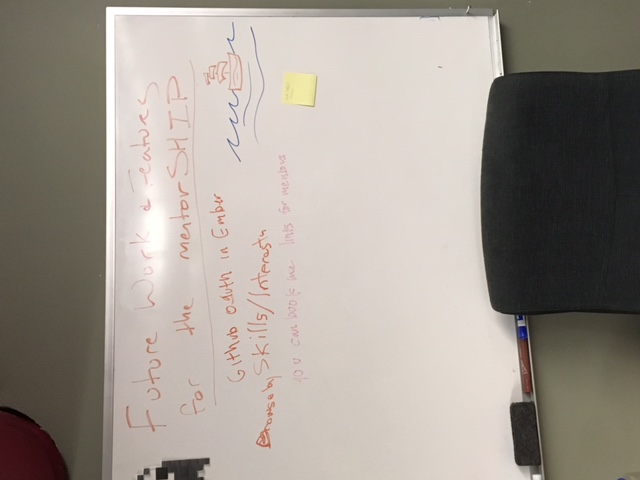 Future Work & Features
for the mentorSHIP
Github oAuth in Ember
Browse by Skills/Interests
you can book me links for mentors